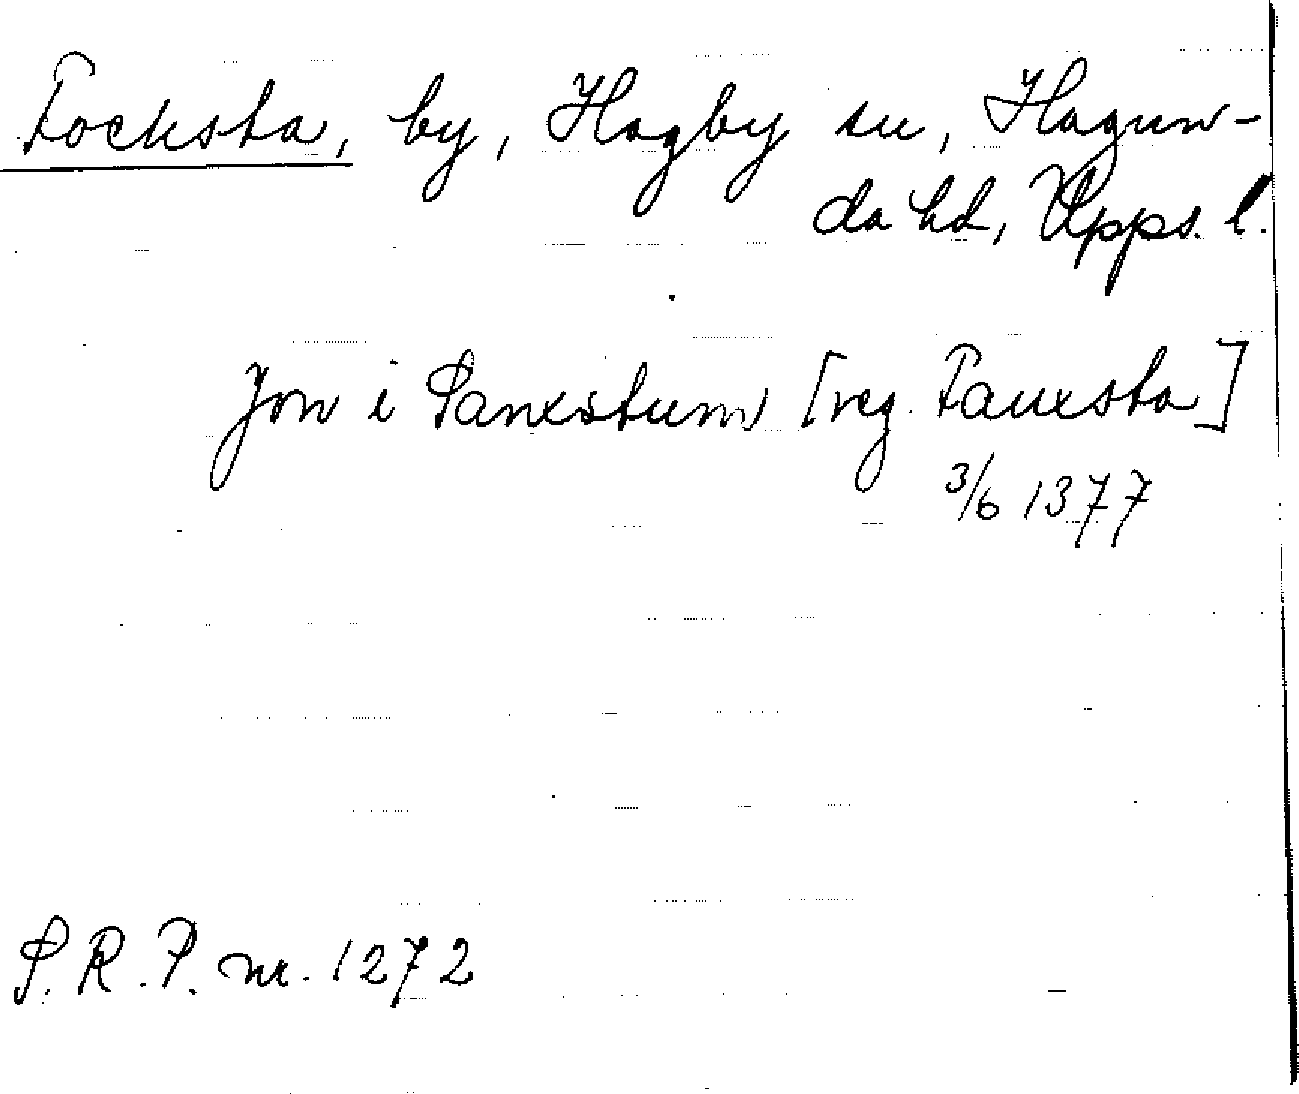 Focksta, by, Hagby sn, Hagun-
da hd, Upps. l.
Jon i Fanxstum [reg. Fauxsta]
3/6 1377
S.R.P. nr. 1272